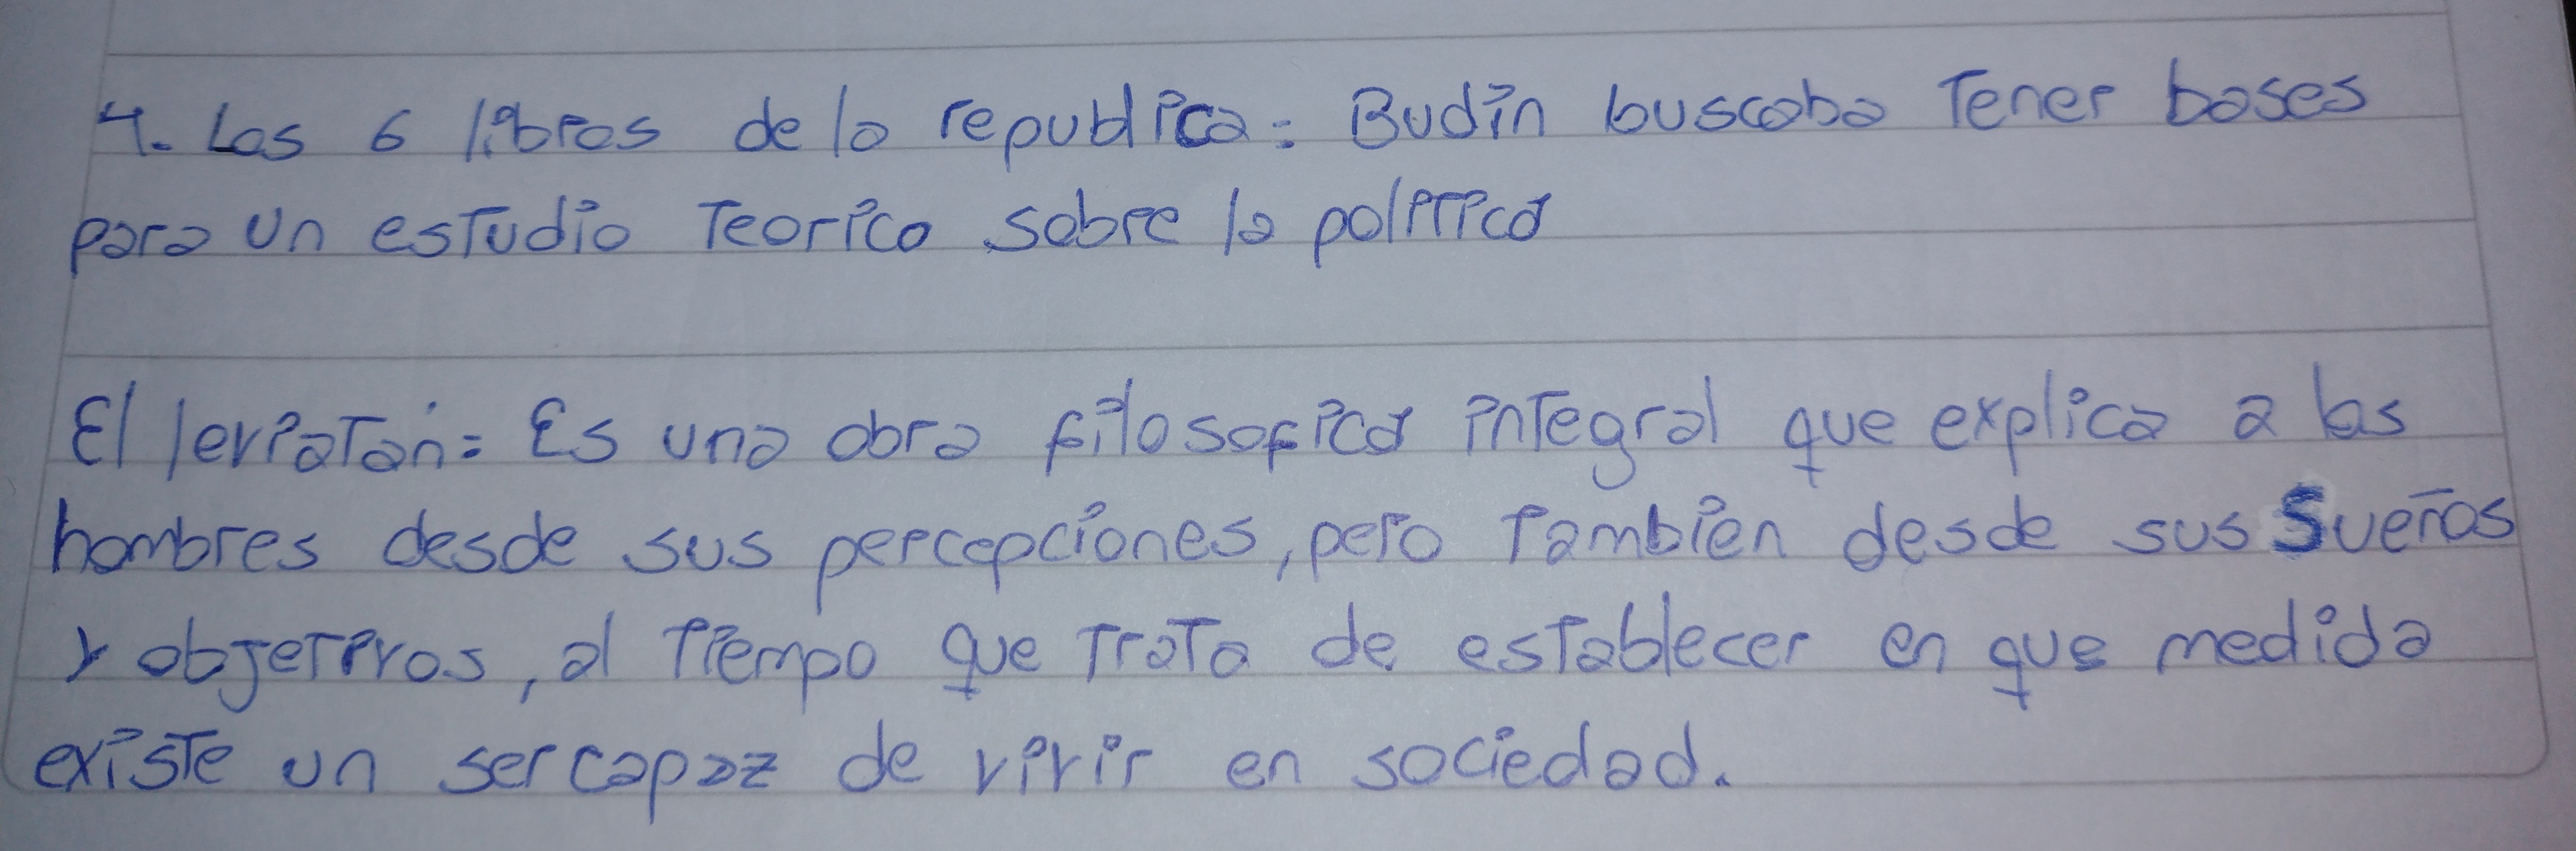 4. Los 6 libros de la republica: Budin buscaba Tener bases
para un esTudio Teorico sobre la politica
El leviaTán: Es una obra filosofica inTegral que explica a los
hombres desde sus percepciones, pero Tambien desde sus sueños
y objeTivos, al Tiempo que TraTa de esTablecer en que medida
exisTe un ser capaz de vivir en sociedad.